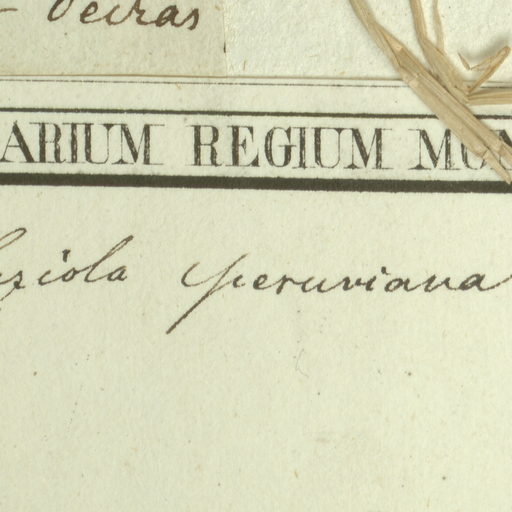 - Oeiras
ARIUM REGIUM MON
ziola peruviana